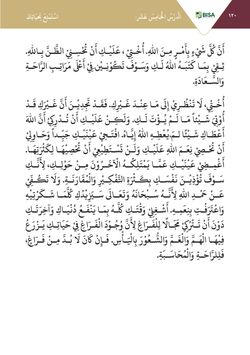 ١٢٠ BISA الدَّرْسُ الْخَامِسَ عَشَرَ: اسْتَمْتِعْ بِحَيَاتِكَ
أَنَّ كُلَّ شَيْءٍ بِأَمْرٍ مِنَ اللهِ. أُخْتِي، عَلَيْكِ أَنْ تُحْسِنِي الظَّنَّ بِاللهِ.
ثِقِي بِمَا كَتَبَهُ اللهُ لَكِ وَسَوْفَ تَكُوْنِيْنَ فِيْ أَعْلَى مَرَاتِبِ الرَّاحَةِ
وَالسَّعَادَةِ.
أُخْتِي، لَا تَنْظُرِيْ إِلَى مَا عِنْدَ غَيْرِكِ. فَقَدْ تَجِدِيْنَ أَنَّ غَيْرَكِ قَدْ
أُوْتِيَ شَيْئًا مَا لَمْ يُؤْتَ لَكِ. وَلَكِنْ عَلَيْكِ أَنْ تُدْرِكِيْ أَنَّ اللهَ
أَعْطَاكِ شَيْئًا لَمْ يُعْطِهِ اللهُ إِيَّاهُ. افْتَحِيْ عَيْنَيْكِ جَيِّدًا وَحَاوِلِيْ
أَنْ تُحْصِيْ نِعَمَ اللهِ عَلَيْكِ وَلَنْ تَسْتَطِيْعِيْ أَنْ تُحْصِيْهَا لِكَثْرَتِهَا.
أَغْمِضِيْ عَيْنَيْكِ عَمَّا يَمْتَلِكُهُ الْآخَرُوْنَ مِنْ حَوْلِكِ، لِأَنَّكِ
سَوْفَ تُؤْذِيْنَ نَفْسَكِ بِكَثْرَةِ التَّفْكِيْرِ وَالْمُقَارَنَةِ. وَلَا تَكُفِّيْ
عَنْ حَمْدِ اللهِ لِأَنَّهُ سُبْحَانَهُ وَتَعَالَى سَيَزِيْدُكِ كُلَّمَا شَكَرْتِيْهِ
وَاعْتَرَفْتِ بِنِعَمِهِ. أَشْغِلِيْ وَقْتَكِ كُلَّهُ بِمَا يَنْفَعُ دُنْيَاكِ وَآخِرَتَكِ
دُوْنَ أَنْ تَتْرُكِيْ مَجَالًا لِلْفَرَاغِ لِأَنَّ وُجُوْدَ الْفَرَاغِ فِيْ حَيَاتِكِ يَزْرَعُ
فِيْهَا الْهَمَّ وَالْغَمَّ وَالشُّعُوْرَ بِالْيَأْسِ. فَإِنْ كَانَ لَا بُدَّ مِنْ فَرَاغٍ،
فَلِلرَّاحَةِ وَالْمُحَاسَبَةِ.